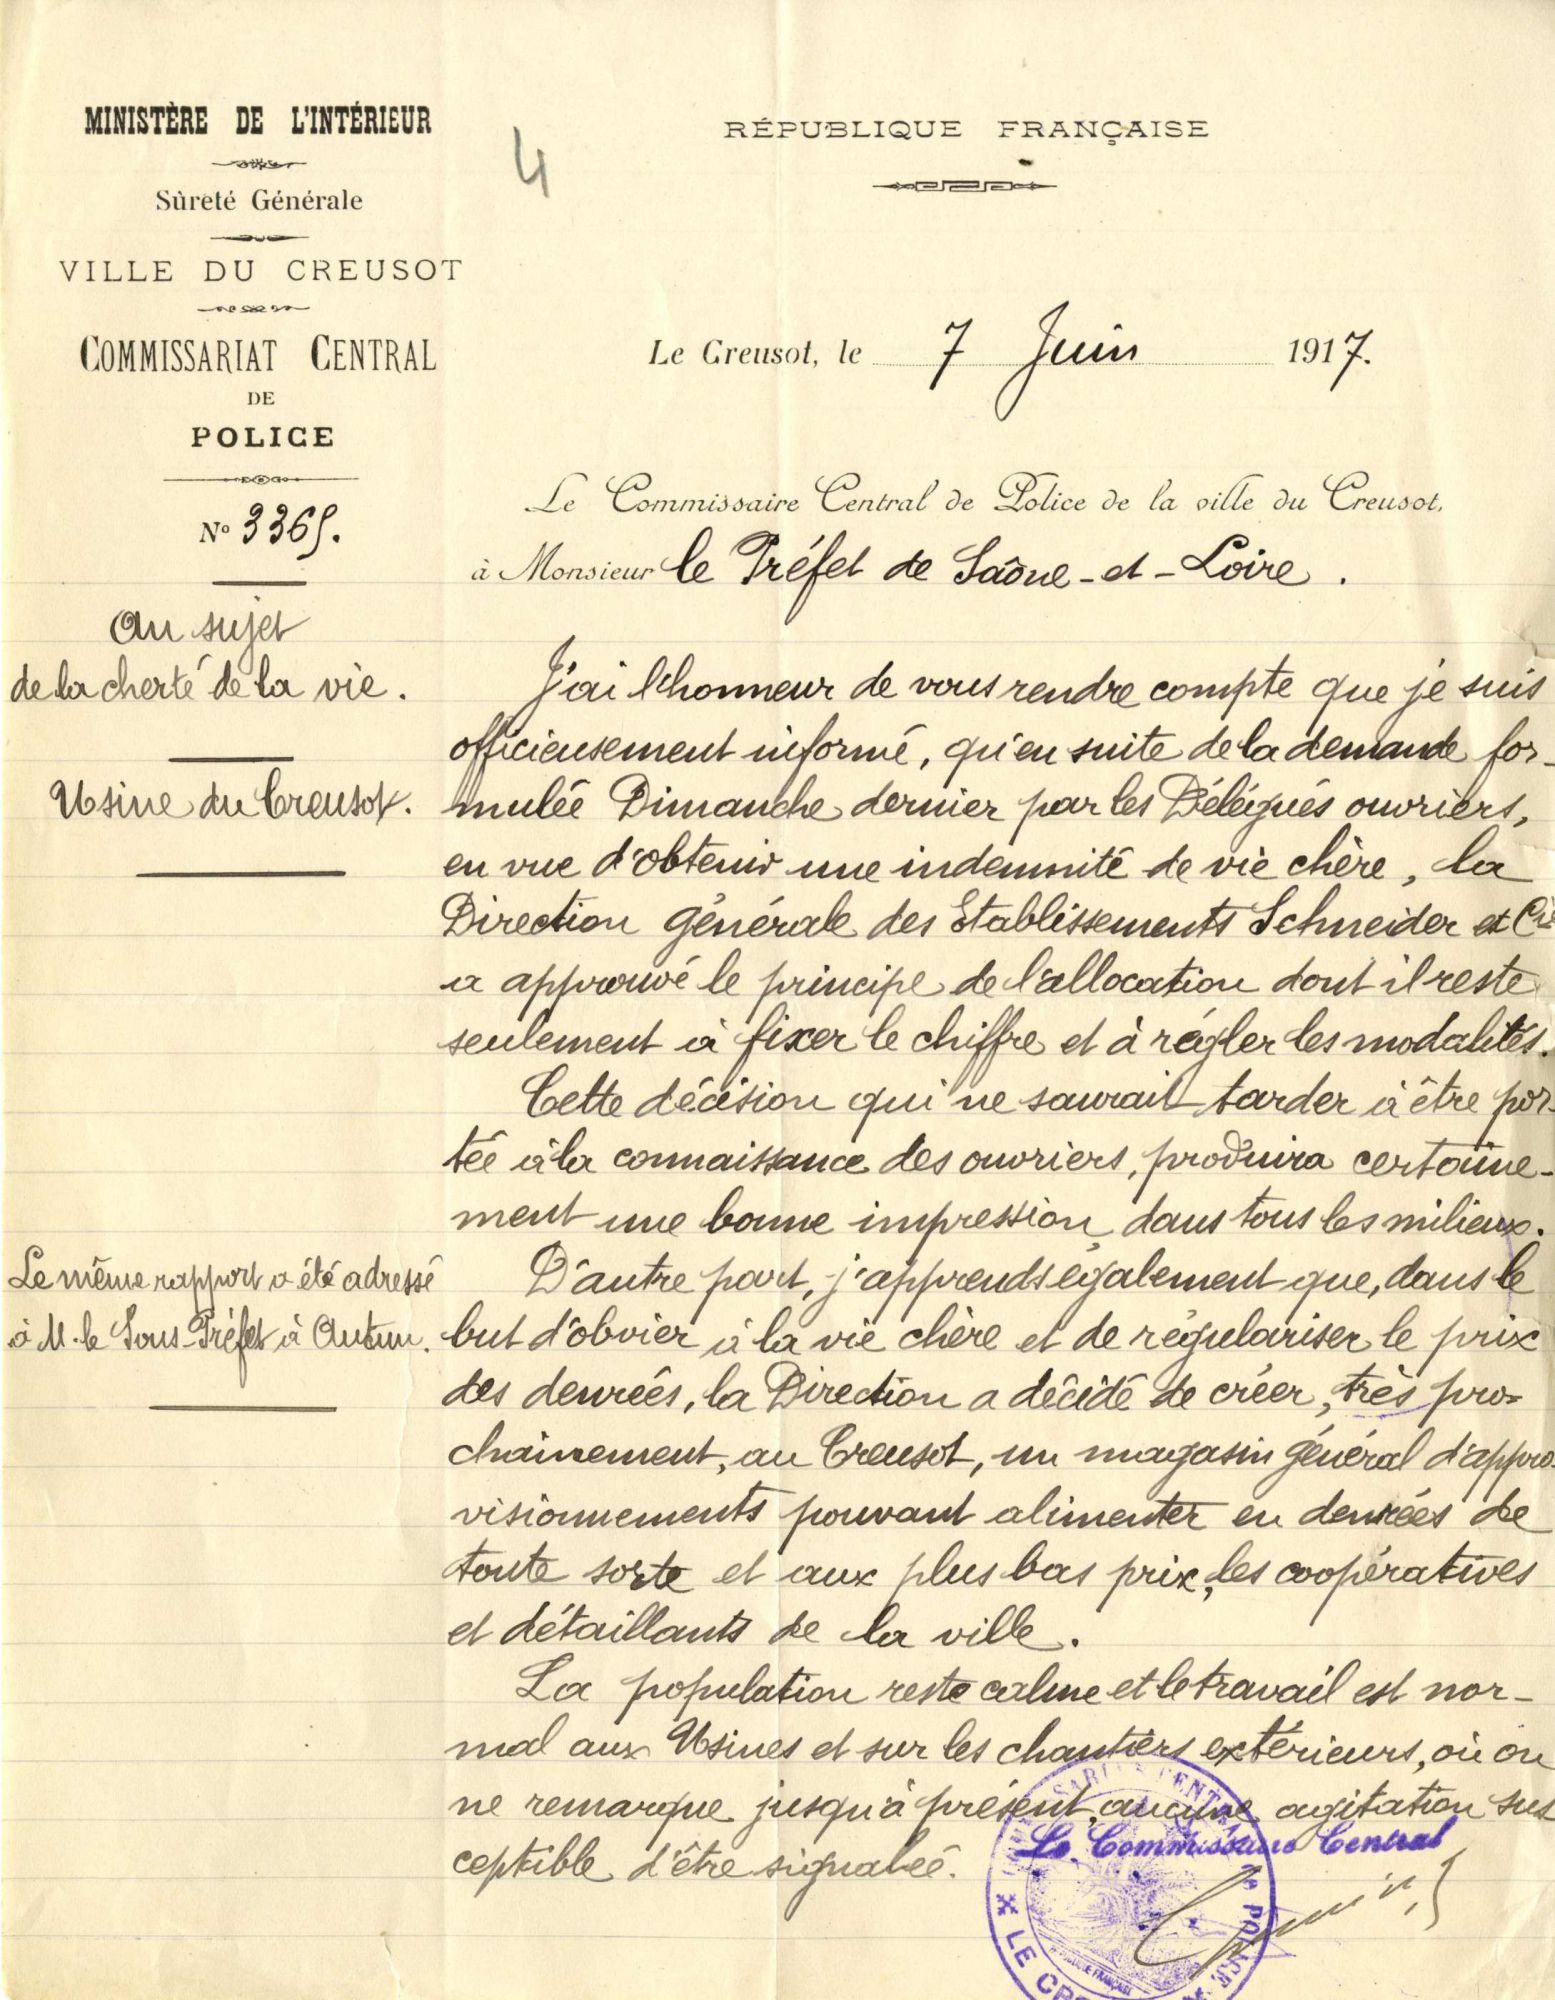 MINISTÈRE DE L'INTÉRIEUR
Sûreté Générale
VILLE DU CREUSOT
COMMISSARIAT CENTRAL
DE
POLICE
Nº 3365.
Au sujet
de la cherté de la vie.
Usine du Creusot.
Le même rapport a été adressé
à M. le Sous-Préfet à Autun.
4
RÉPUBLIQUE FRANÇAISE
Le Creusot, le 7 Juin 1917.
Le Commissaire Central de Police de la ville du Creusot,
à Monsieur le Préfet de Saône-et-Loire.
J'ai l'honneur de vous rendre compte que je suis
officieusement informé, qu'en suite de la demande for-
mulée Dimanche dernier par les Délégués ouvriers,
en vue d'obtenir une indemnité de vie chère, la
Direction générale des Etablissements Schneider et Cie
a approuvé le principe de l'allocation dont il reste
seulement à fixer le chiffre et à régler les modalités.
Cette décision qui ne saurait tarder à être por-
tée à la connaissance des ouvriers, produira certaine-
ment une bonne impression, dans tous les milieux.
D'autre part, j'apprends également que, dans le
but d'obvier à la vie chère et de régulariser le prix
des denrées, la Direction a décidé de créer, très pro-
chainement, au Creusot, un magasin général d'appro-
visionnements pouvant alimenter en denrées de
toute sorte et aux plus bas prix, les coopératives
et détaillants de la ville.
La population reste calme et le travail est nor-
mal aux Usines et sur les chantiers extérieurs, où on
ne remarque jusqu'à présent, aucune agitation sus
ceptible d'être signalée.
Le Commissaire Central
COMMISSARIAT CENTRAL DE POLICE
RÉPUBLIQUE FRANÇAISE
LE CRE